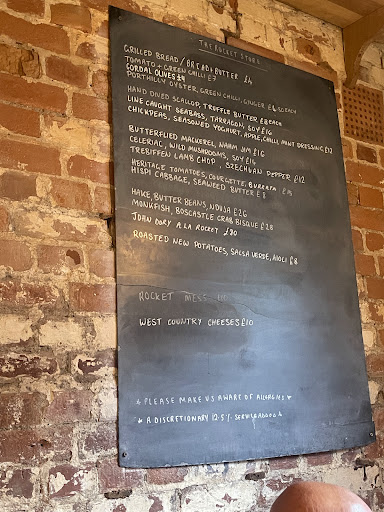 THE ROCKET STORE
GRILLED BREAD / BREAD + BUTTER £4
TOMATO + GREEN CHILLI £7
GORDAL OLIVES £4
PORTHILLY OYSTER, GREEN CHILLI, GINGER EACH
HAND DIVED SCALLOP, TRUFFLE BUTTER £8 EACH
LINE CAUGHT SEABASS, TARRAGON, SOY £16
CHICKPEAS, SEASONED YOGHURT, APPLE, CHILLI, MINT DRESSING £12
BUTTERFLIED MACKEREL, NAHM JIM £16
CELERIAC, WILD MUSHROOMS, SOY £15
TREBIFFEN LAMB CHOP, SZECHUAN PEPPER £12
HERITAGE TOMATOES, COURGETTE, BURRATA £15
HISPI CABBAGE, SEAWEED BUTTER £8
HAKE, BUTTER BEANS, NDUJA £26
MONKFISH, BOSCASTLE CRAB BISQUE £28
JOHN DORY A LA ROCKET £30
ROASTED NEW POTATOES, SALSA VERDE, AIOLI £8
ROCKET MESS
WEST COUNTRY CHEESES £10
PLEASE MAKE US AWARE OF ALLERGIES
A DISCRETIONARY 12.5%